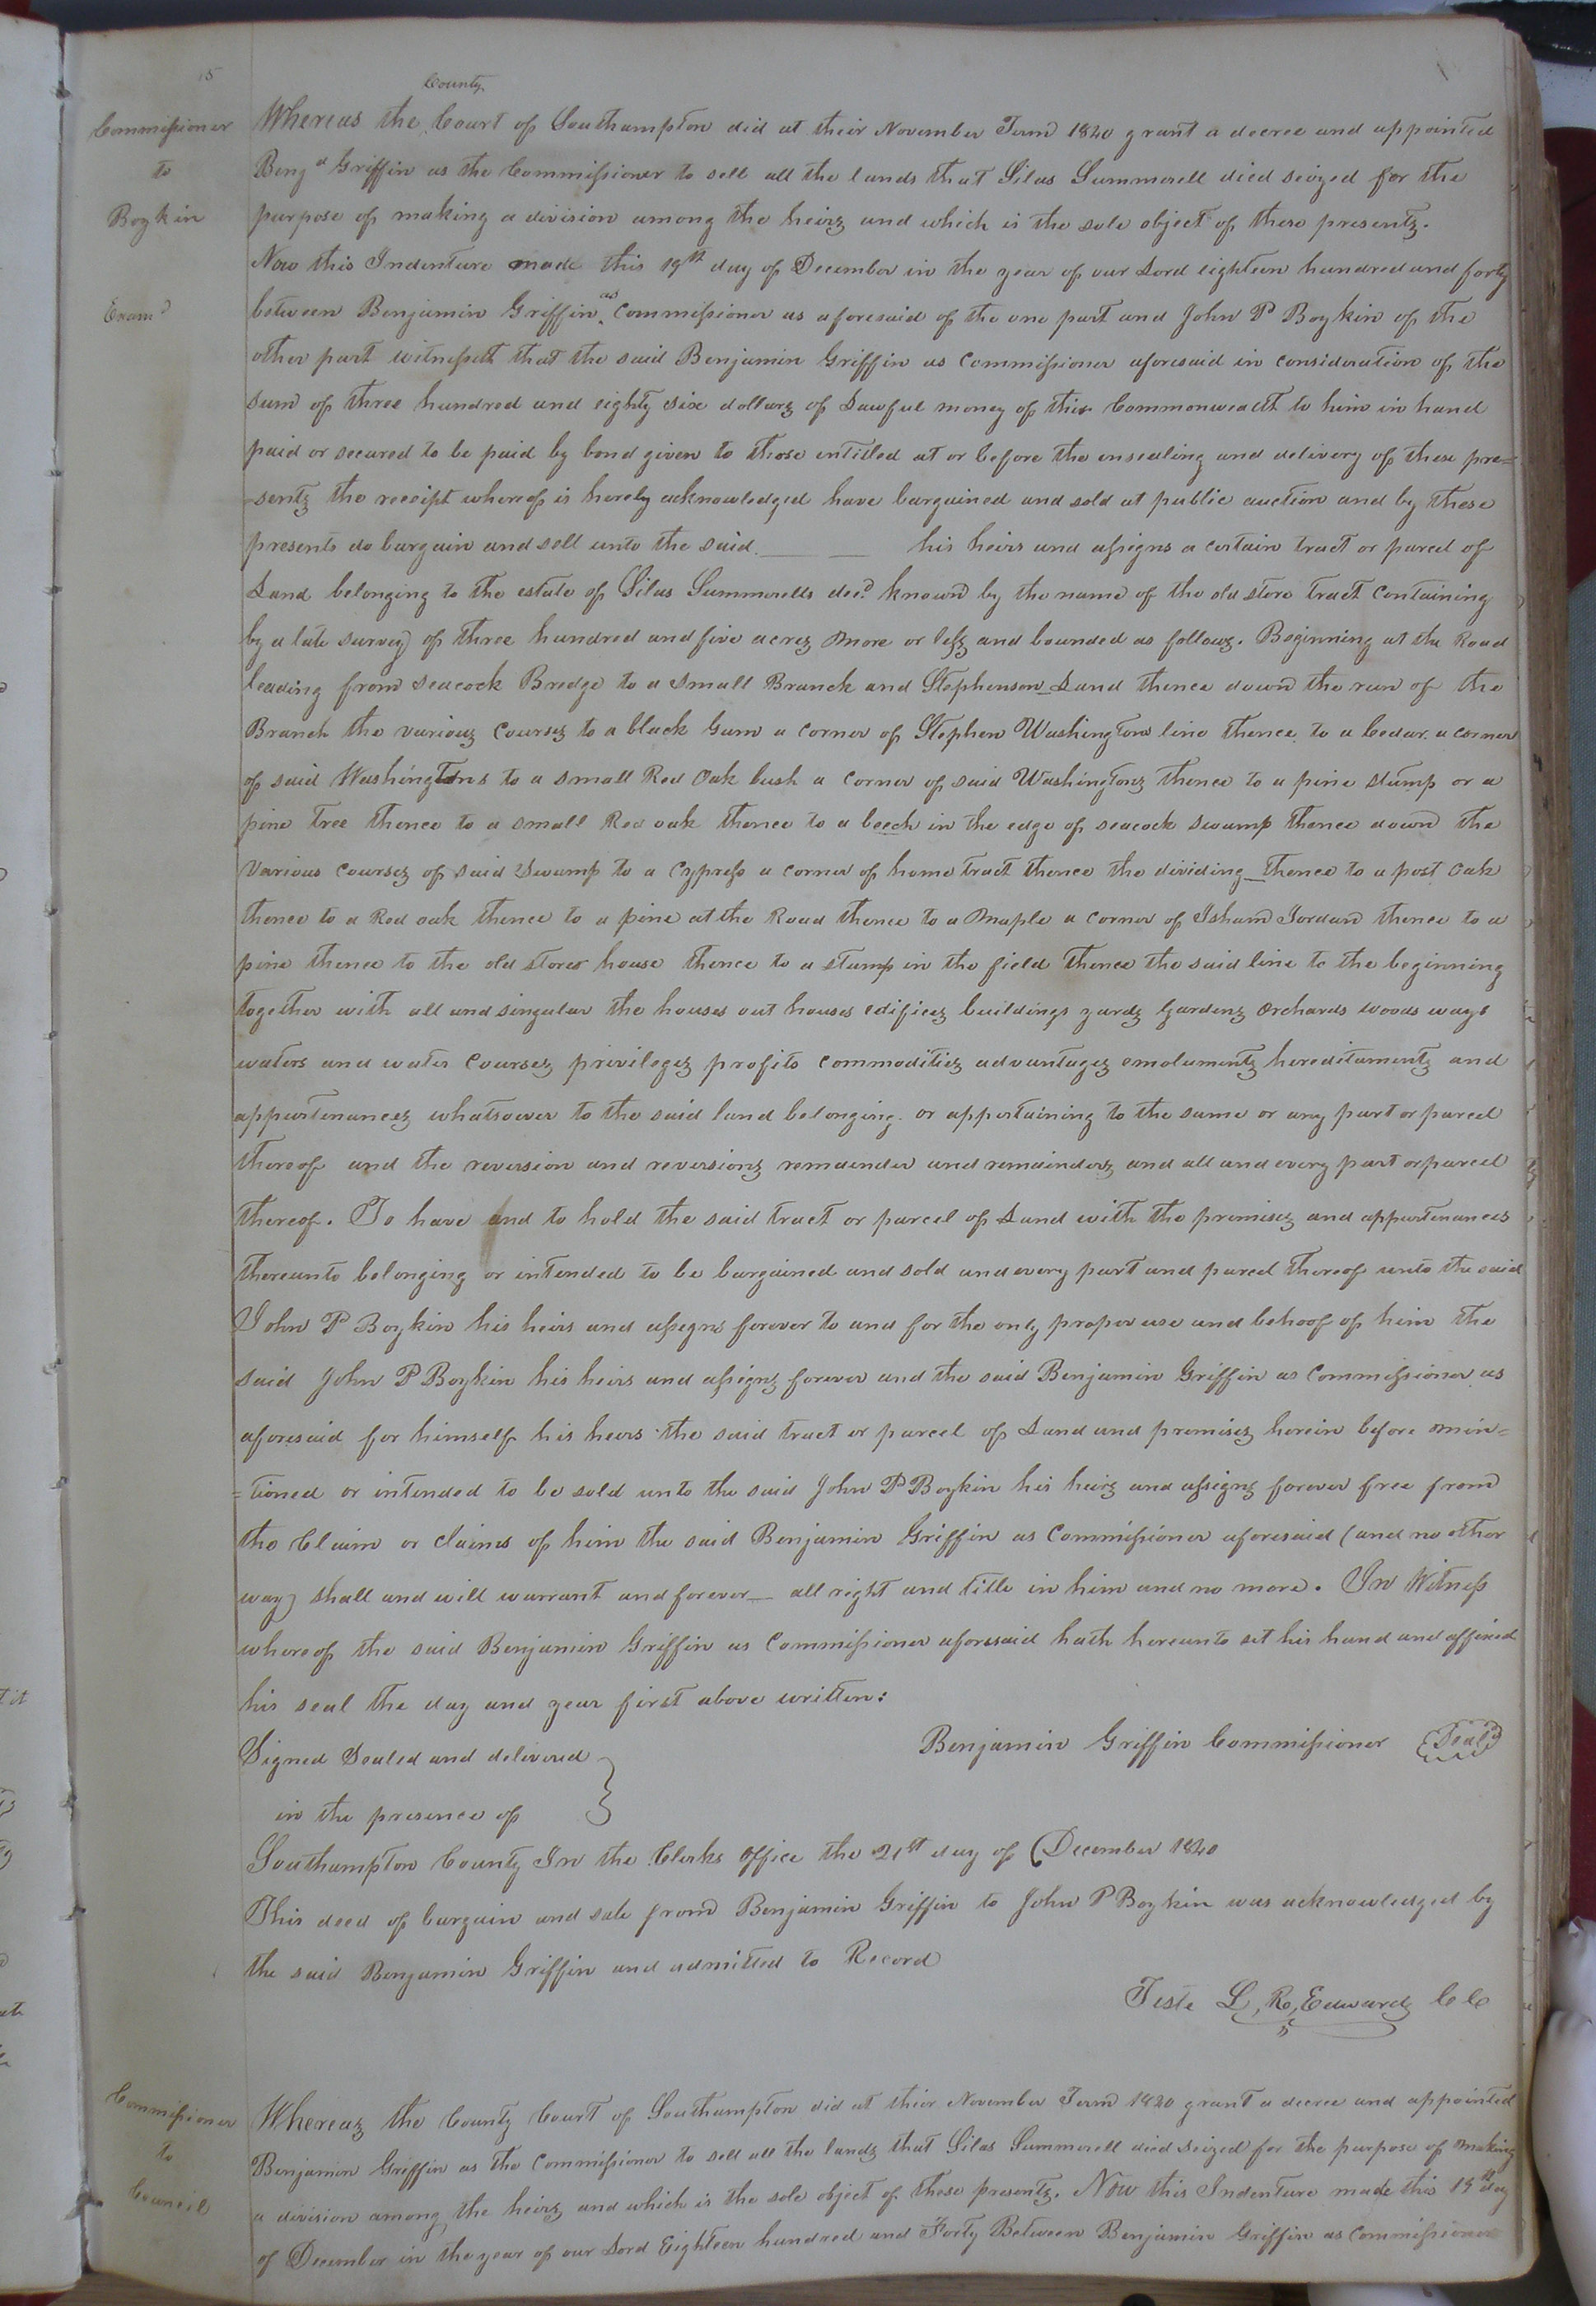 15
County
Commissioner
to
Boykin
Exam.d
Whereas the Court of Southampton did at their November Term 1840 grant a decree and appointed
Benj.a Griffin as the Commissioner to sell all the lands that Silas Summerell died seized for the
purpose of making a division among the heirs and which is the sole object of these presents.
Now this Indenture made this 19th day of December in the year of our Lord eighteen hundred and forty
between Benjamin Griffin as Commissioner as aforesaid of the one part and John P Boykin of the
other part witnesseth that the said Benjamin Griffin as Commissioner aforesaid in consideration of the
sum of three hundred and eighty six dollars of Lawful money of this Commonwealth to him in hand
paid or secured to be paid by bond given to those intitled at or before the ensealing and delivery of these pre=
-sents the receipt whereof is hereby acknowledged have bargained and sold at public auction and by these
presents do bargain and sell unto the said ___ ___ his heirs and assigns a certain tract or parcel of
Land belonging to the estate of Silas Summerells dec.d known by the name of the old store tract containing
by a late survey) of three hundred and five acres more or less and bounded as follows. Beginning at the Road
leading from Seacock Bredge to a small Branch and Stephenson Land thence down the run of the
Branch the various courses to a black Gum a corner of Stephen Washingtons line thence to a Cedar a corner
of said Washingtons to a small Red Oak bush a corner of said Washingtons thence to a pine stump or a
pine tree thence to a small Red oak thence to a beech in the edge of seacock swamp thence down the
various courses of said Swamp to a Cypress a corner of home tract thence the dividing__thence to a post Oak
thence to a Red oak thence to a pine at the Road thence to a maple a corner of Isham Jordan thence to a
pine thence to the old store house thence to a stump in the field thence the said line to the beginning
together with all and singular the houses out houses edifices buildings yards gardens orchards woods ways
waters and water courses privileges profits commodities advantages emoluments hereditaments and
appurtenances whatsoever to the said land belonging or appertaining to the same or any part or parcel
thereof and the reversion and reversions remainder and remainders and all and every part or parcel
thereof. To have and to hold the said tract or parcel of Land with the premises and appurtenances
thereunto belonging or intended to be bargained and sold and every part and parcel thereof unto the said
John P Boykin his heirs and assigns forever to and for the only proper use and behoof of him the
said John P Boykin his heirs and assigns forever and the said Benjamin Griffin as Commissioner as
aforesaid for himself his heirs the said tract or parcel of Land and premises herein before men=
=tioned or intended to be sold unto the said John P Boykin his heirs and assigns forever free from
the Claim or claims of him the said Benjamin Griffin as Commissioner aforesaid (and no other
way) shall and will warrant and forever__ all right and title in him and no more. In Witness
whereof the said Benjamin Griffin as Commissioner aforesaid hath hereunto set his hand and affixed
his seal the day and year first above written:
Benjamin Griffin Commissioner Seal
Signed Sealed and delivered
in the presence of
Southampton County In the Clerks office the 21st day of December 1840
This deed of bargain and sale from Benjamin Griffin to John P Boykin was acknowledged by
the said Benjamin Griffin and admitted to Record
Teste L, R, Edwards CC
Commissioner
to
Council
Whereas the County Court of Southampton did at their November Term 1840 grant a decree and appointed
Benjamin Griffin as the Commissioner to sell all the lands that Silas Summerell died seized for the purpose of making
a division among the heirs and which is the sole object of these presents. Now this Indenture made this 19th day
of December in the year of our Lord Eighteen hundred and Forty Between Benjamin Griffin as Commissioner